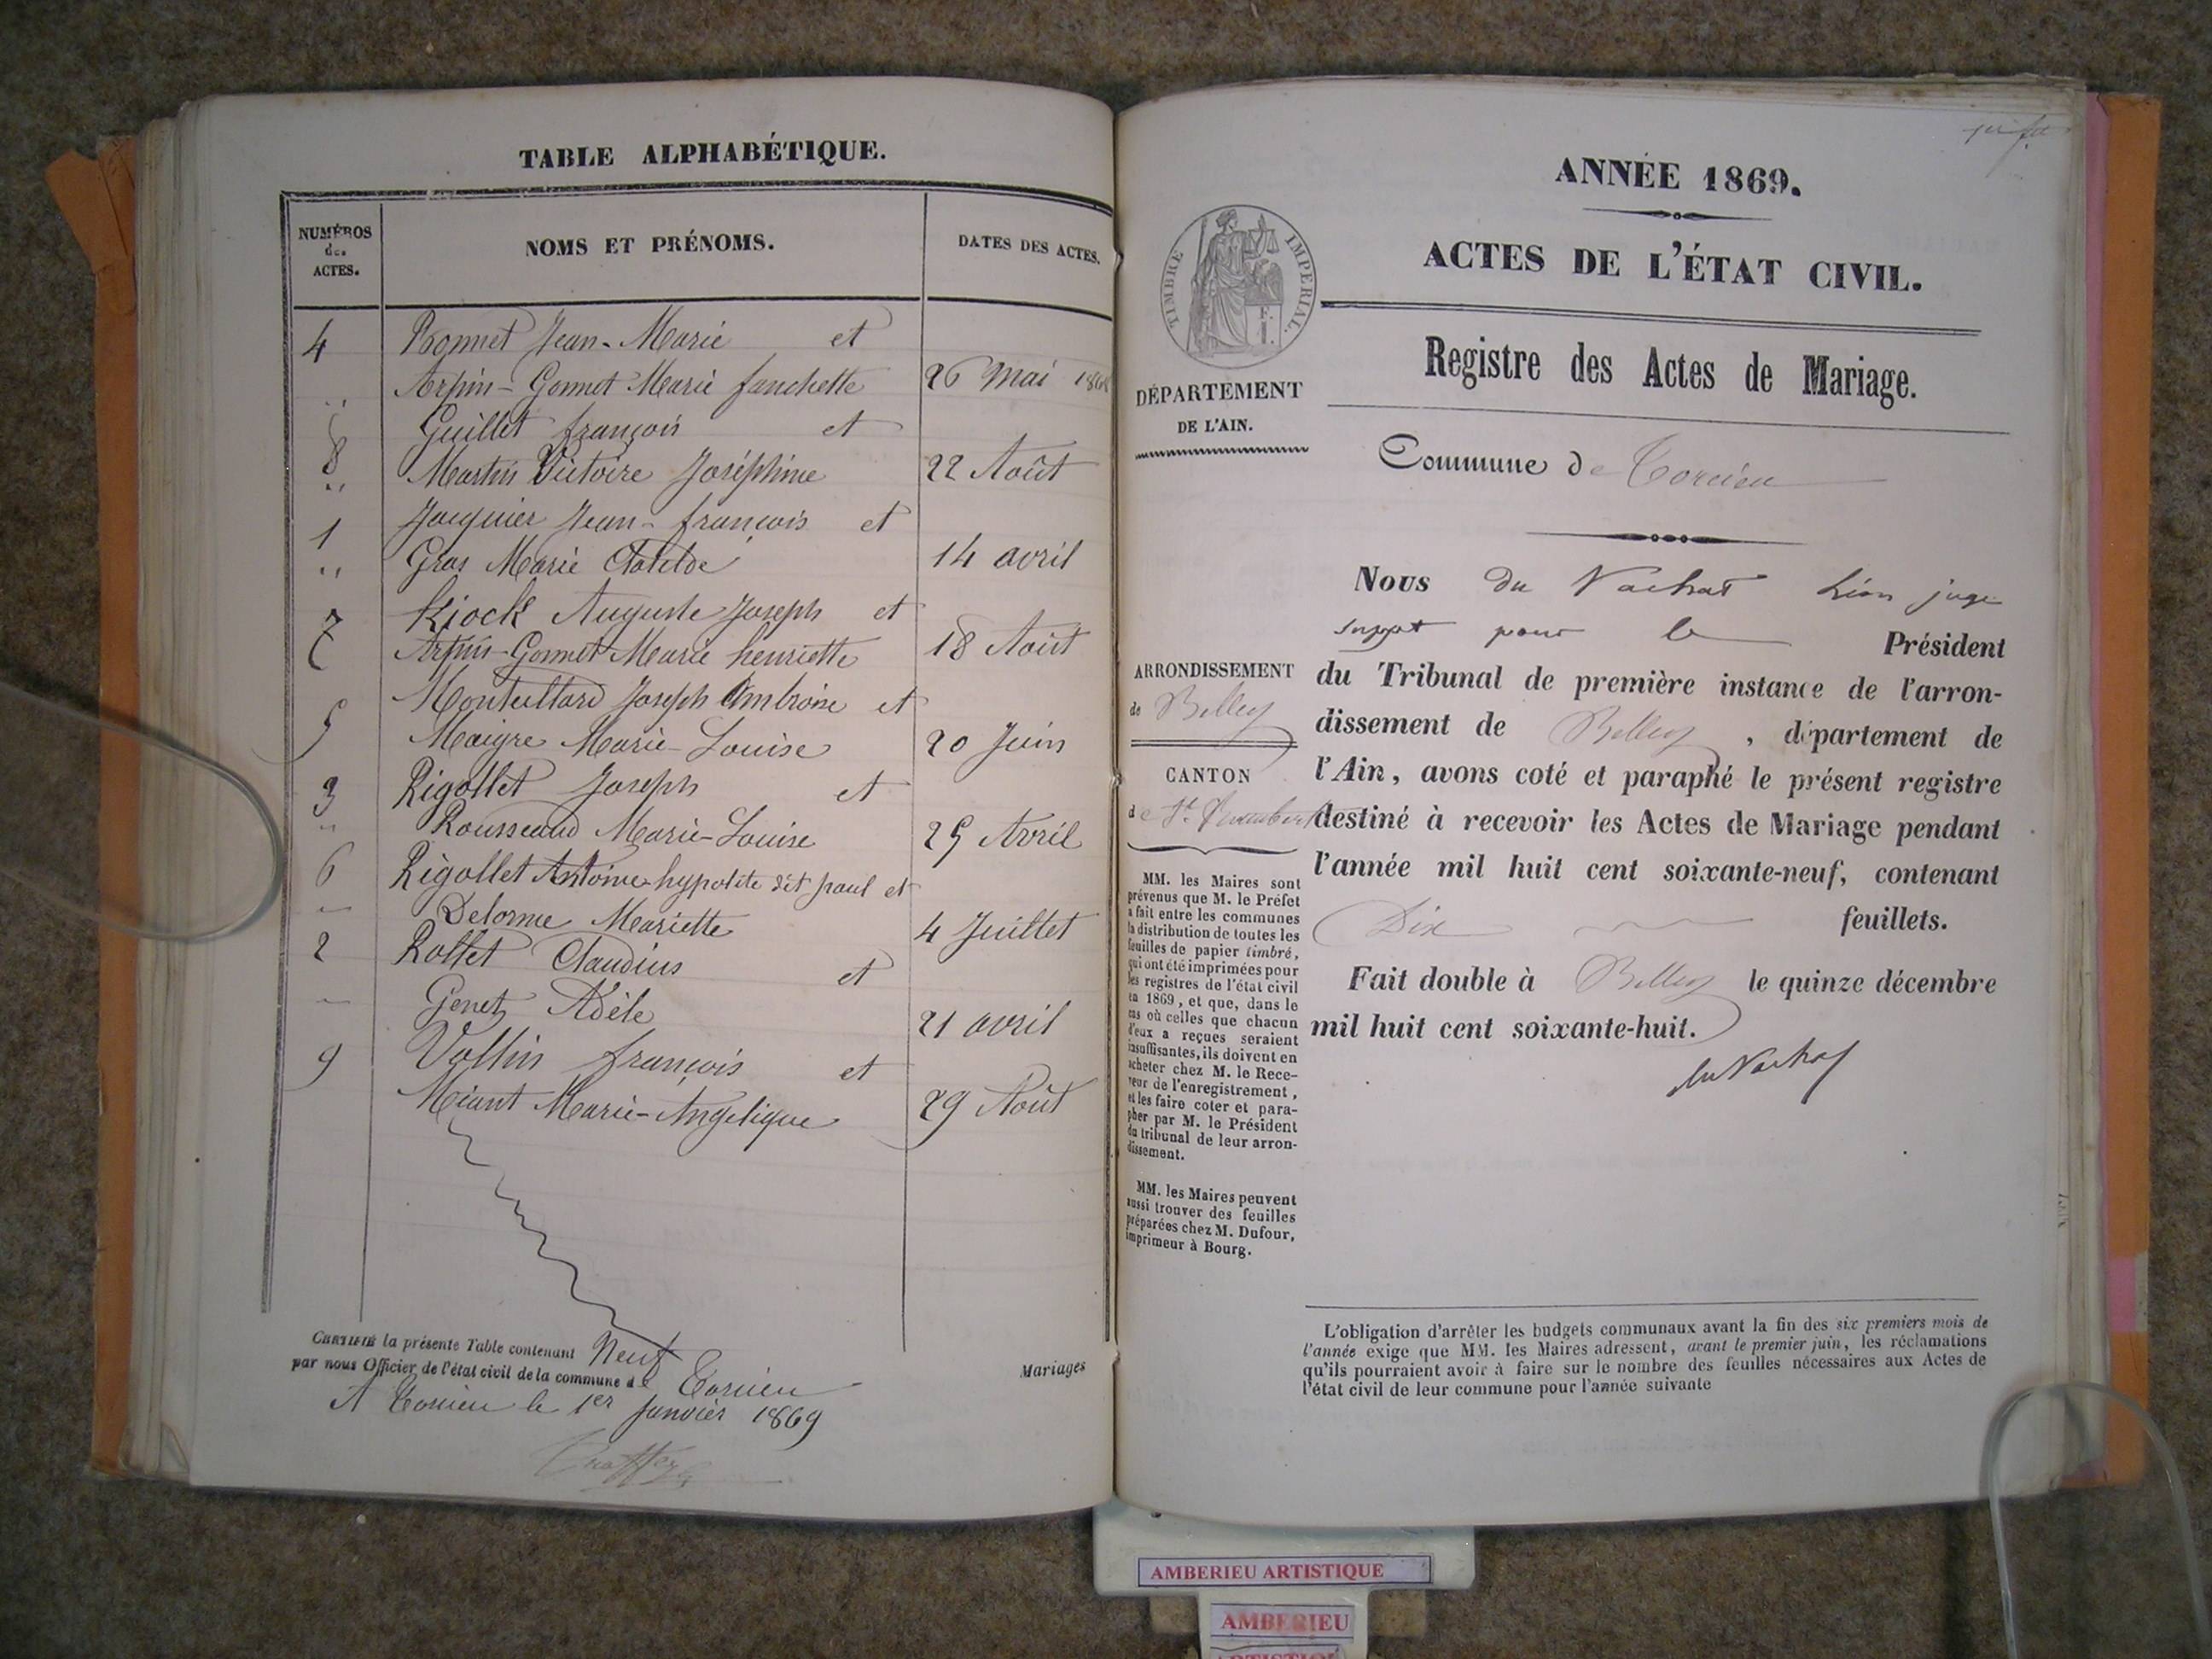 TABLE ALPHABÉTIQUE.
NUMÉROS
des
ACTES.
NOMS ET PRÉNOMS.
DATES DES ACTES.
4 Bonnet Jean-Marie et
" Arpin-Gonnet Marie fanchette 26 Mai 1868
Guillet françois et
8 Martin Victoire Joséphine 22 Août
"
Jacquier Jean-françois et
1
" Gras Marie Clotilde 14 avril
Kiock Auguste Joseph et
7
Arpin-Gonnet Marie henriette 18 Août
Monteillard Joseph Ambroise et
5 Maigre Marie-Louise 20 Juin
3 Rigollet Joseph et
" Rousseaud Marie-Louise 25 Avril
6 Rigollet Antoine hypolite dit paul et
" Delorme Mariette 4 Juillet
2 Rollet Claudius et
" Genet Adèle 21 avril
9 Vallin françois et
Miant Marie-Angelique 29 Août
CERTIFIÉ la présente Table contenant Neuf
par nous Officier de l'état civil de la commune de Torcieu
A Torcieu le 1er Janvier 1869
Mariages
ANNÉE 1869.
ACTES DE L'ÉTAT CIVIL.
TIMBRE IMPÉRIAL.
Registre des Actes de Mariage.
DÉPARTEMENT
DE L'AIN.
Commune de Torcieu
Nous du Vachat Léon juge
suppt pour le Président
du Tribunal de première instance de l'arron-
dissement de Belley, département de
l'Ain, avons coté et paraphé le présent registre
destiné à recevoir les Actes de Mariage pendant
l'année mil huit cent soixante-neuf, contenant
Dix feuillets.
Fait double à Belley le quinze décembre
mil huit cent soixante-huit.
du Vachat
ARRONDISSEMENT
de Belley
CANTON
de St. Rambert
MM. les Maires sont
prévenus que M. le Préfet
a fait entre les communes
la distribution de toutes les
feuilles de papier timbré,
qui ont été imprimées pour
les registres de l'état civil
en 1869, et que, dans le
cas où celles que chacun
d'eux a reçues seraient
insuffisantes, ils doivent en
acheter chez M. le Rece-
veur de l'enregistrement,
et les faire coter et para-
pher par M. le Président
du tribunal de leur arron-
dissement.
MM. les Maires peuvent
aussi trouver des feuilles
préparées chez M. Dufour,
imprimeur à Bourg.
L'obligation d'arrêter les budgets communaux avant la fin des six premiers mois de
l'année exige que MM. les Maires adressent, avant le premier juin, les réclamations
qu'ils pourraient avoir à faire sur le nombre des feuilles nécessaires aux Actes de
l'état civil de leur commune pour l'année suivante
AMBERIEU ARTISTIQUE
AMBERIEU
ARTISTIQUE